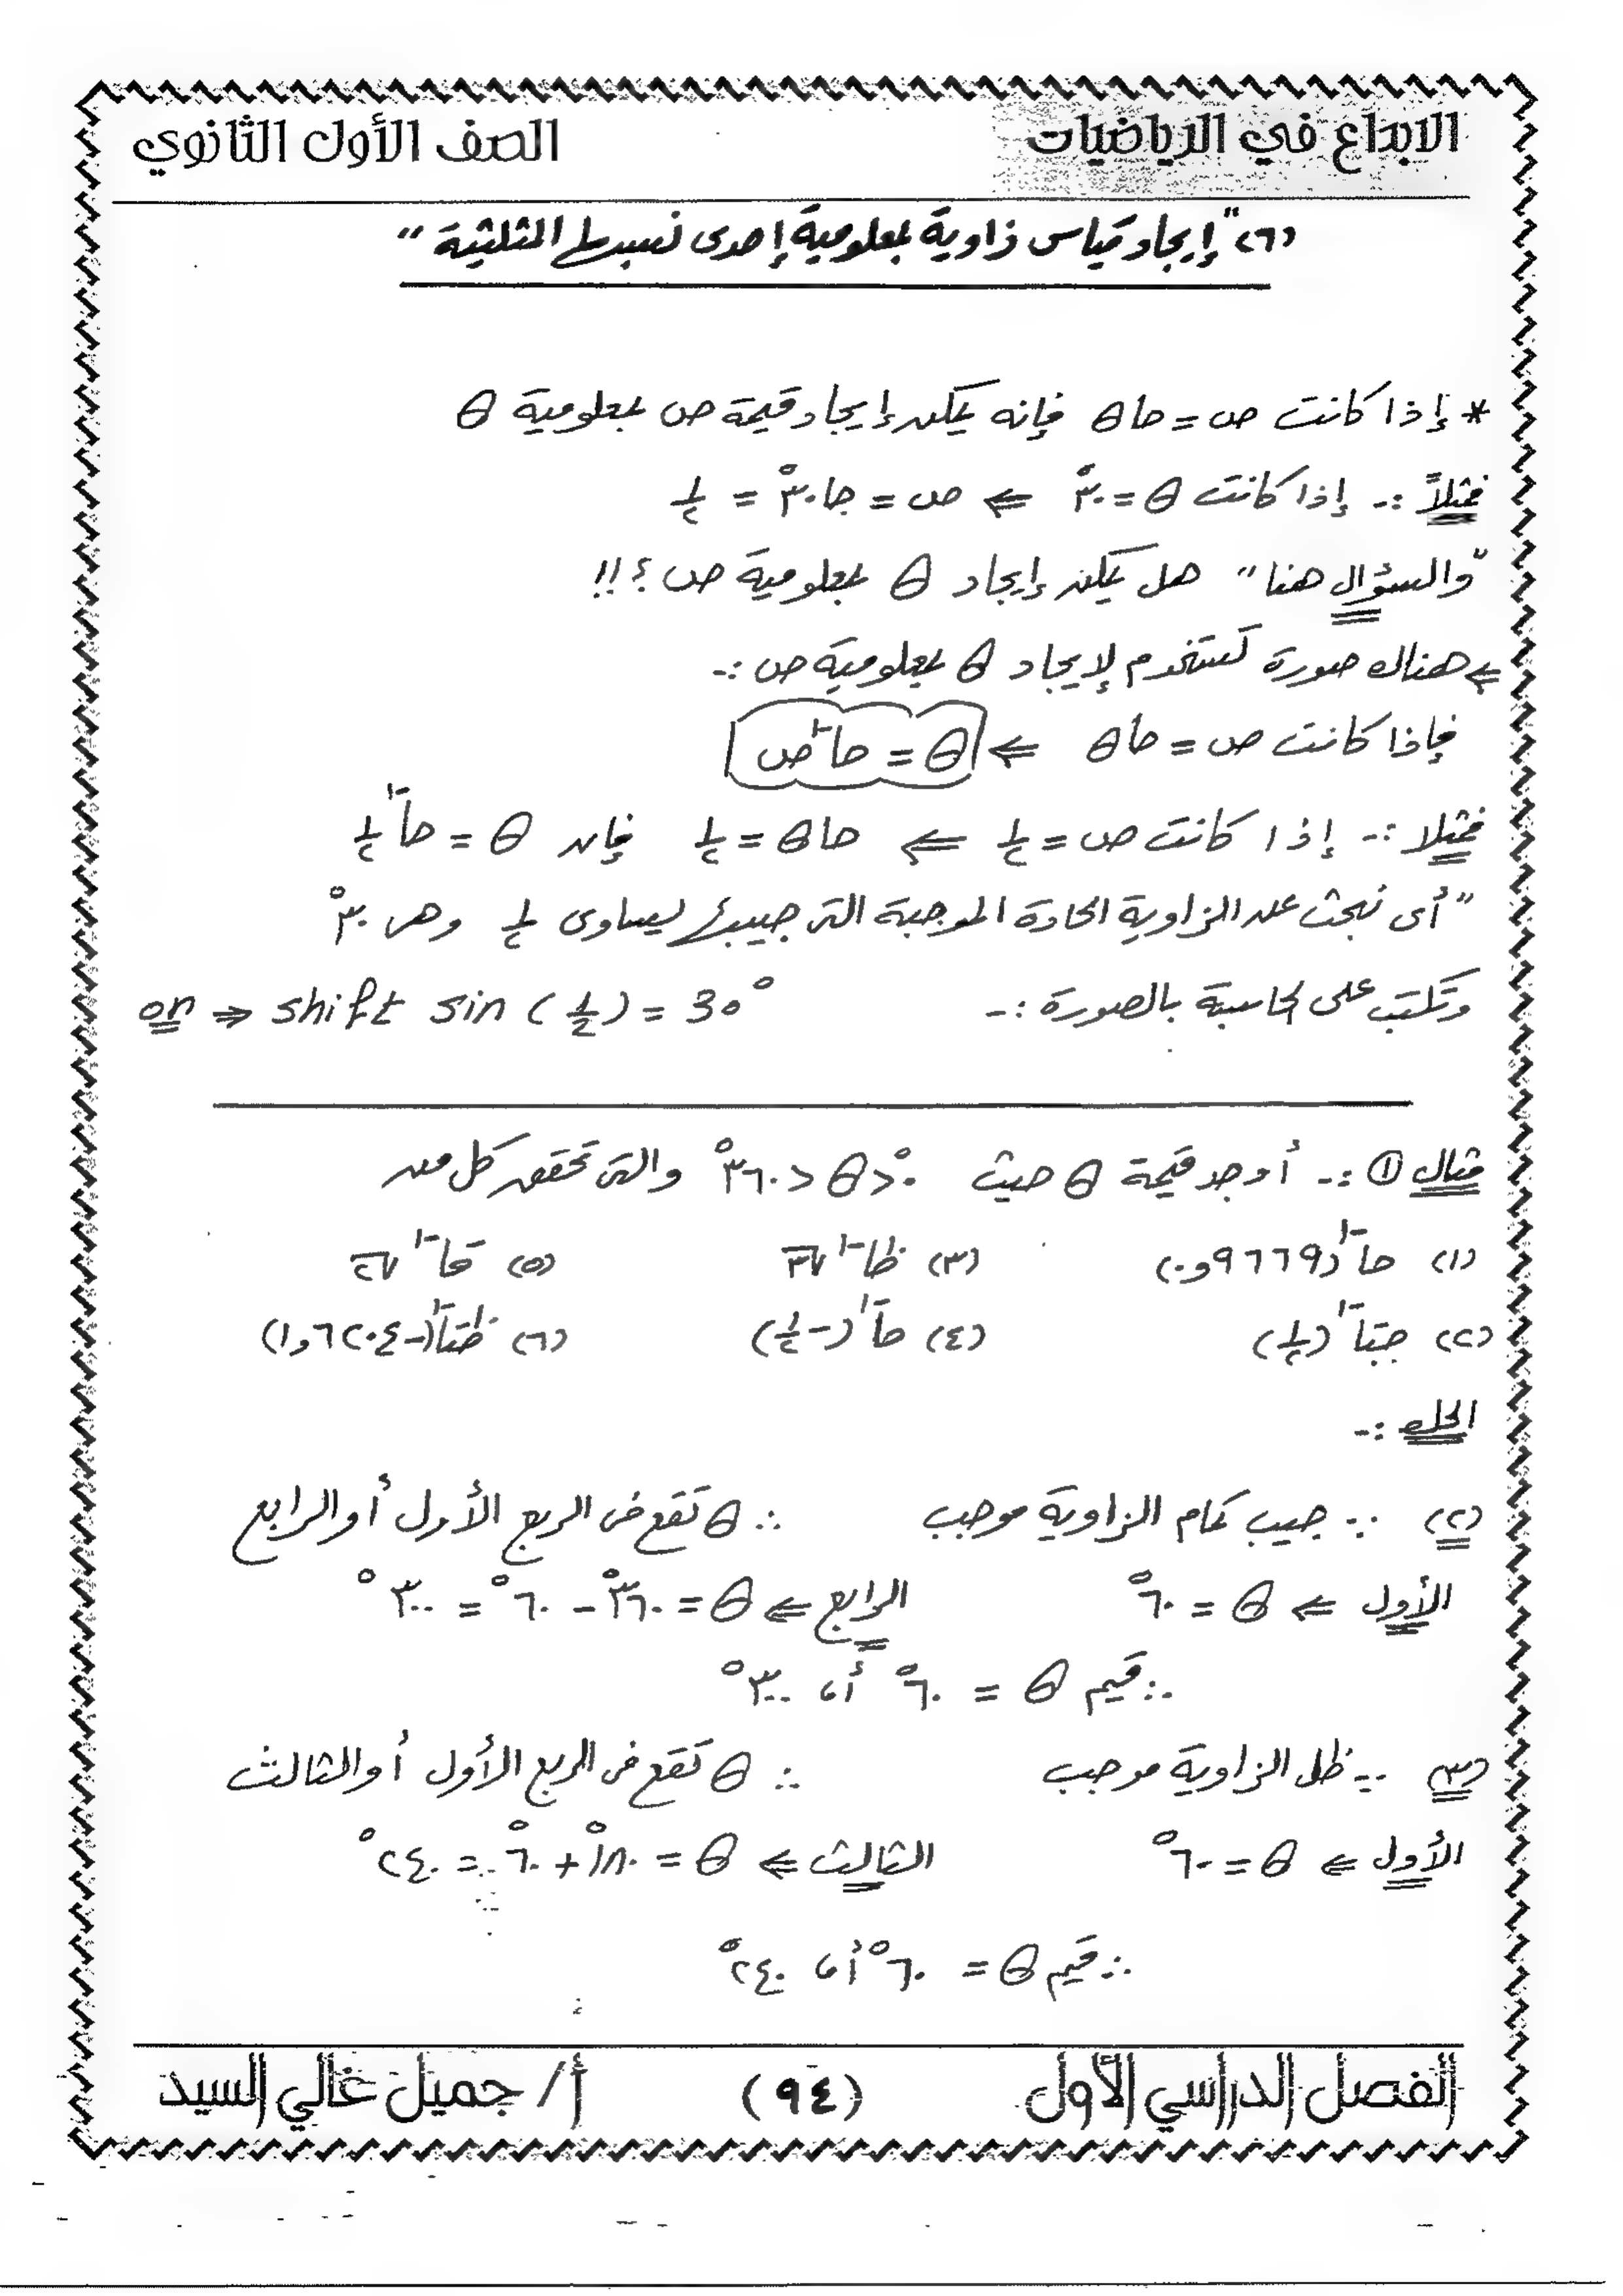 الابداع في الرياضيات الصف الأول الثانوي
(٦) "إيجاد قياس زاوية بمعلومية إحدى نسبها المثلثية"
* إذا كانت ص = حا θ فإنه يمكن إيجاد قيمة ص بمعلومية θ
فمثلاً :- إذا كانت θ = ٣٠° ⇐ ص = حا ٣٠° = ١/٢
"والسؤال هنا" هل يمكن إيجاد θ بمعلومية ص ؟!!
⇐ هناك صورة تستخدم لإيجاد θ بمعلومية ص :-
فإذا كانت ص = حا θ ⇐ θ = حا⁻¹ ص
فمثلا :- إذا كانت ص = ١/٢ ⇐ حا θ = ١/٢ فإن θ = حا⁻¹ ١/٢
"أى نبحث عن الزاوية الحادة الموجبة التى جيبها يساوى ١/٢ وهى ٣٠°
وتكتب على الحاسبة بالصورة :- on ⇒ shift sin (1/2) = 30°
مثال ① :- أوجد قيمة θ حيث ٠° < θ < ٣٦٠° والتى تحقق كل من
(١) حا⁻¹ (٠,٩٦٦٩) (٣) ظا⁻¹ √٣ (٥) قا⁻¹ √٢
(٢) جتا⁻¹ (١/٢) (٤) حا⁻¹ (-١/٢) (٦) ظتا⁻¹ (-١,٦٢٠٤)
الحل :-
(٢) ∵ جيب تمام الزاوية موجب ∴ θ تقع فى الربع الأول أو الرابع
الأول ⇐ θ = ٦٠° الرابع ⇐ θ = ٣٦٠° - ٦٠° = ٣٠٠°
∴ قيم θ = ٦٠° أ، ٣٠٠°
(٣) ∵ ظل الزاوية موجب ∴ θ تقع فى الربع الأول أو الثالث
الأول ⇐ θ = ٦٠° الثالث ⇐ θ = ١٨٠° + ٦٠° = ٢٤٠°
∴ قيم θ = ٦٠° أ، ٢٤٠°
الفصل الدراسي الأول (٩٤) أ/ جميل غالي السيد